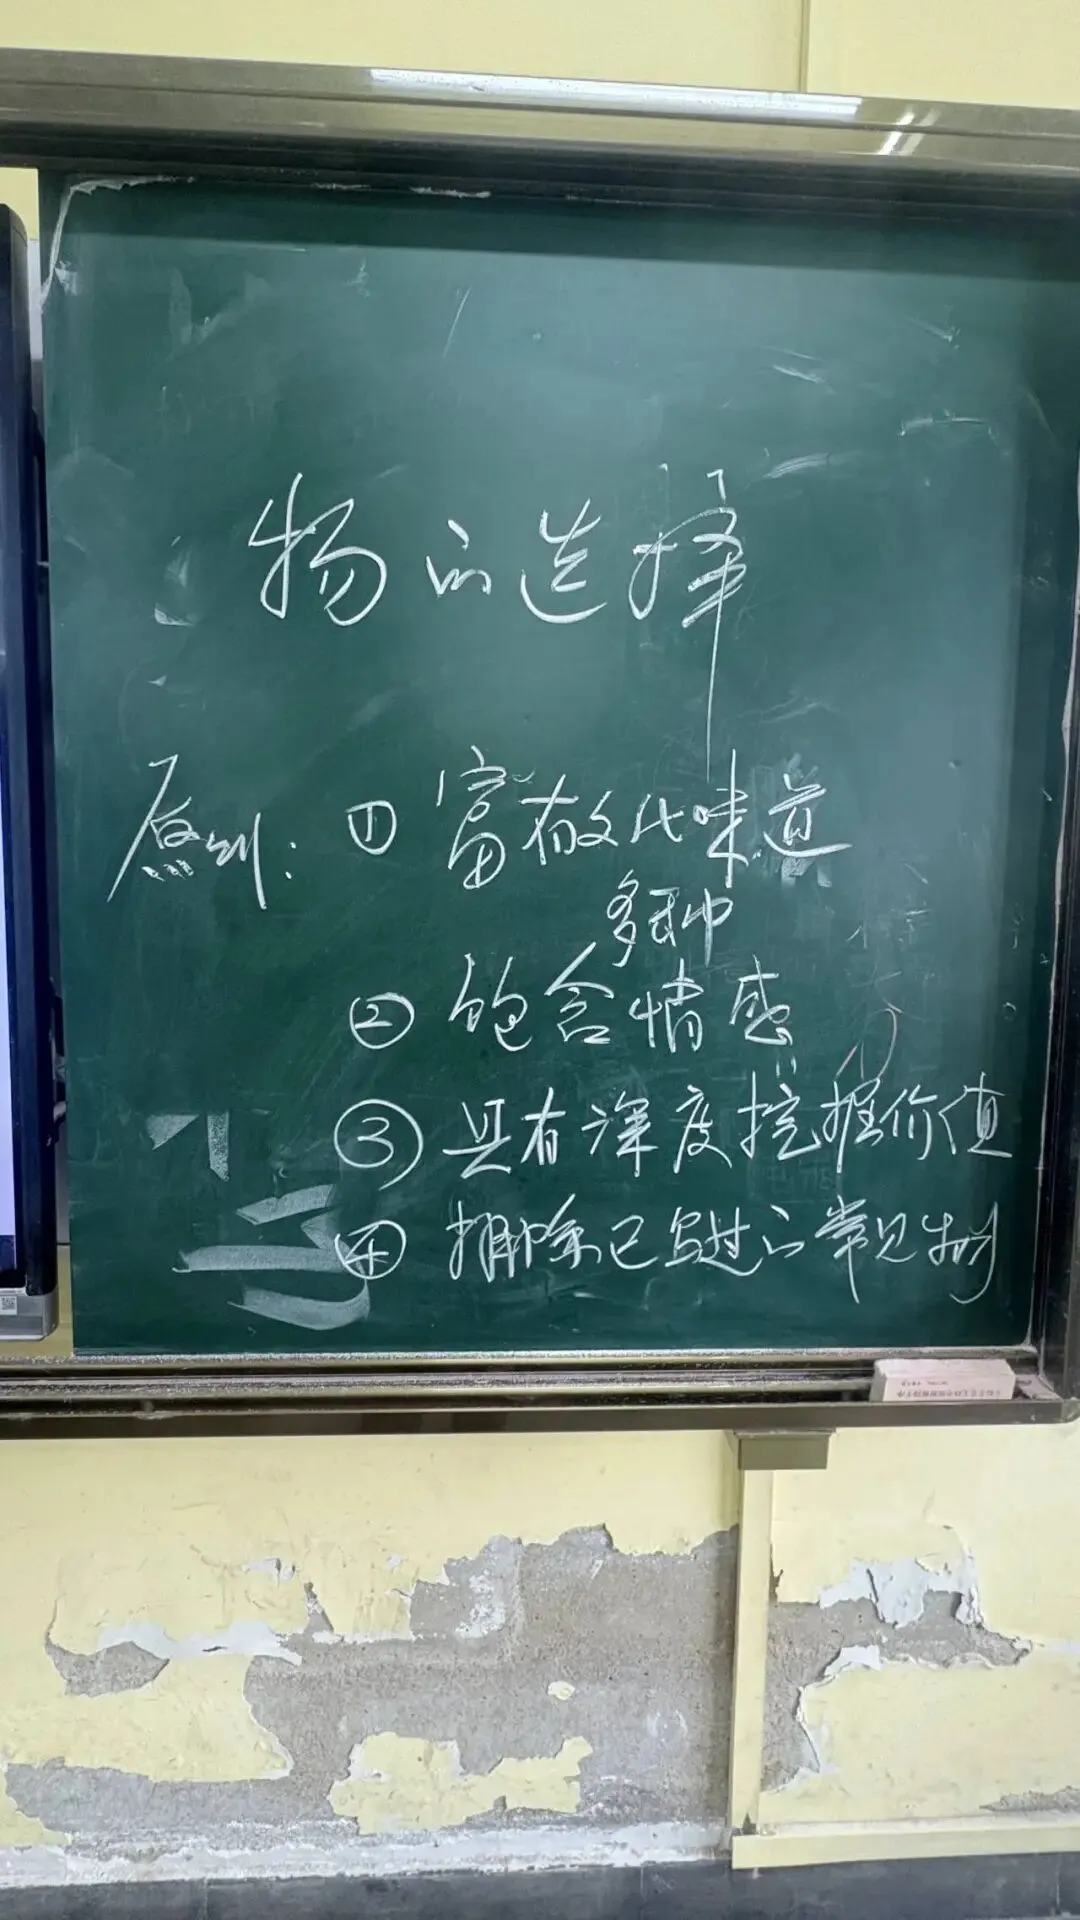 物的选择
原则：① 富有文化味道
多种
② 饱含情感
③ 具有深度挖掘价值
④ 排除已写过的常见物